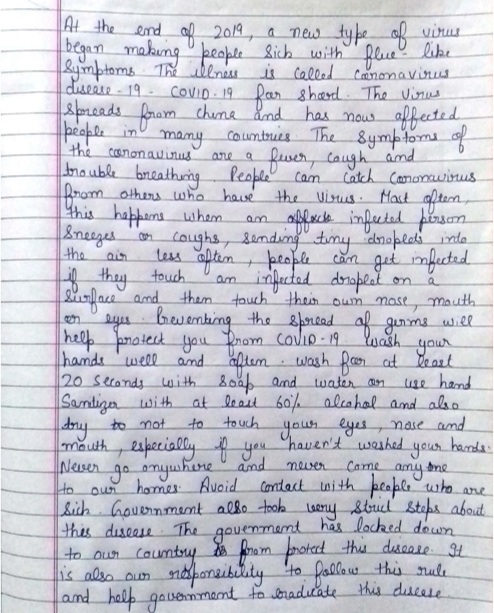 At the end of 2019, a new type of virus
began making people sick with flue-like
symptoms. The illness is called coronavirus
disease-19- COVID-19 for short. The virus
spreads from china and has now affected
people in many countries. The symptoms of
the coronavirus are a fever, cough and
trouble breathing. People can catch coronavirus
from others who have the virus. Most often,
this happens when an infected person
sneezes or coughs, sending tiny droplets into
the air less often, people can get infected
if they touch an infected droplet on a
surface and then touch their own nose, mouth
or eyes. Preventing the spread of germs will
help protect you from COVID-19. Wash your
hands well and often. wash for at least
20 seconds with soap and water or use hand
Sanitizer with at least 60% alcohol and also
try to not to touch your eyes, nose and
mouth, especially if you haven't washed your hands.
Never go anywhere and never come anyone
to our homes. Avoid contact with people who are
sick. Government also took very strict steps about
this disease. The government has locked down
to our country from protect this disease. It
is also our responsibility to follow this rule
and help government to eradicate this disease.